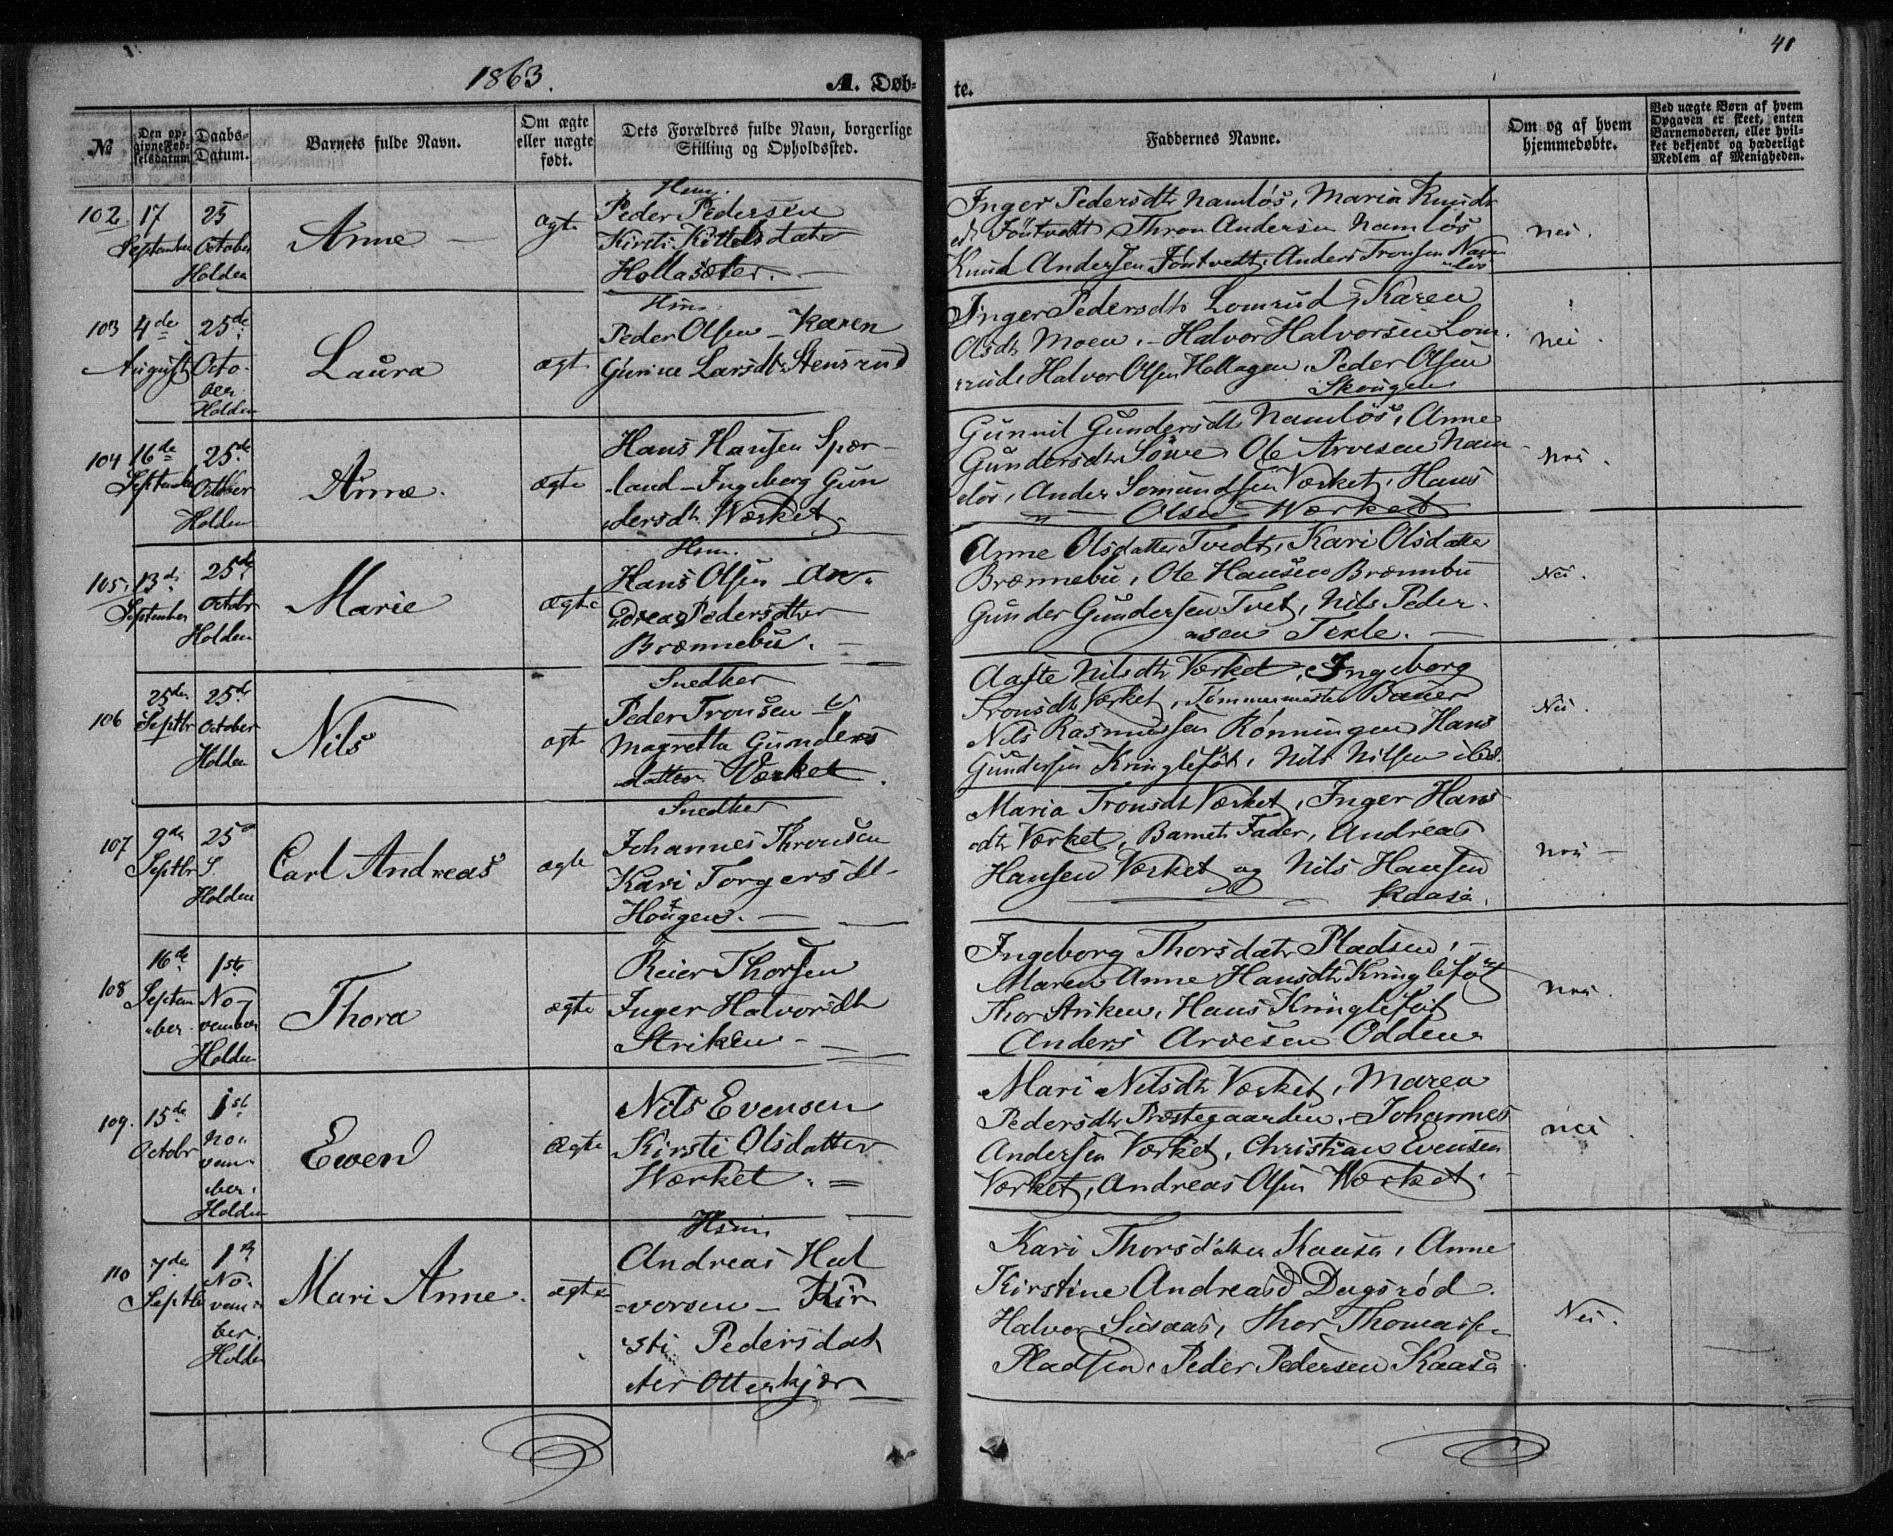 1863.
A. Døb-
te.
41
№
Den op-
givne Fød-
selsdatum
Daabs-
Datum.
Barnets fulde Navn.
Om ægte
eller uægte
født.
Dets Forældres fulde Navn, borgerlige
Stilling og Opholdssted.
Faddernes Navne.
Om og af hvem
hjemmedøbte.
Ved uægte Børn af hvem
Opgaven er skeet, enten
Barnemoderen, eller hvil-
ket bekjendt og hæderligt
Medlem af Menigheden.
102 17
September
25
October
Holden
Anne
ægte
Hsm.
Peder Pedersen
Kirsti Kittelsdatter
Hollasæter.
Inger Pedersdtr Namløs, Maria Knuds
dt Föntvedt, Thron Andersen Namløs
Knud Andersen Föntvedt, Anders Tronsen Nam
løs
Nei.
103 4de
August
25de
Octo-
ber
Holden
Laura
ægt
Hsm.
Peder Olsen - Karen
Gurine Larsdtr Stensrud
Inger Pedersdtr Lomrud, Karen
Olsdtr Moen, - Halvor Halvorsen Lom
rud, Halvor Olsen Hollagen, Peder Olsen
Skougen
Nei.
104 16de
September
25de
October
Holden
Anne.
ægte
Hans Hansen Spær-
land - Ingeborg Gun
dersdtr Værket
Gunnil Gundersdt Namløs, Anne
Gundersdtr Söwe, Ole Arvesen Nam
løs, Ander Somundsen Værket, Hans
Olsen Værket
Nei.
105. 13de
September
25de
Octobr
Holden
Marie
ægte
Hsm.
Hans Olsen An-
drea Pedersdtter
Brænnebu.
Anne Olsdatter Tvedt, Kari Olsdatter
Brænnebu, Ole Hansen Brænnbu
Gunder Gundersen Tvet, Nils Peder-
sen Texle.
Nei.
106
25de
Septbr
25de
October
Holden
Nils
ægte
Snedker
Peder Tronsen &
Magretha Gunders
datter Værket
Aaste Nilsdtr Værket, Ingeborg
Tronsdt Værket, Tømmermester Bauer
Nils Rasmussen Rønningen Hans
Gundersen Kringlefót, Nils Nilsen ibd.
Nei.
107 9de
Septbr
25
S.
Holden
Carl Andreas
ægte
Snedker
Johannes Thronsen
Kari Torgersdt
Hougen.
Maria Tronsdt Værket, Inger Hans
dtr Værket, Barnets Fader, Andreas
Hansen Værket og Nils Hansen
Kaasa.
Nei
108
16de
Septem
ber
1ste
No-
vember
Holden
Thora
ægte
Reier Thorsen
Inger Halvorsdt
Striken
Ingeborg Thorsdatr Pladsen,
Maren Anne Hansdtr Kringlefót
Thor Striken, Hans Kringlefót
Anders Arvesen Odden
Nei.
109. 15de
Octobr
1st
No-
vem-
ber.
Holden
Ewen
ægte
Nils Evensen
Kirsti Olsdatter
Værket.
Mari Nilsdtr Værket, Maren
Pedersdtr Præstegaarden, Johannes
Andersen Værket, Christian Evensen
Værket, Andreas Olsen Værket.
Nei
110 7de
Septbr
1st
No-
vem-
ber.
Holden
Mari Anne.
ægte
Hsm
Andreas Hal
vorsen - Kir
sti Pedersdat
ter Otterkjær
Kari Thorsdatter Kaasa, Anne
Kirstine Andreasd Dagsrød.
Halvor Sisaas, Thor Thomassen
Pladsen, Peder Pedersen Kaasa
Nei.